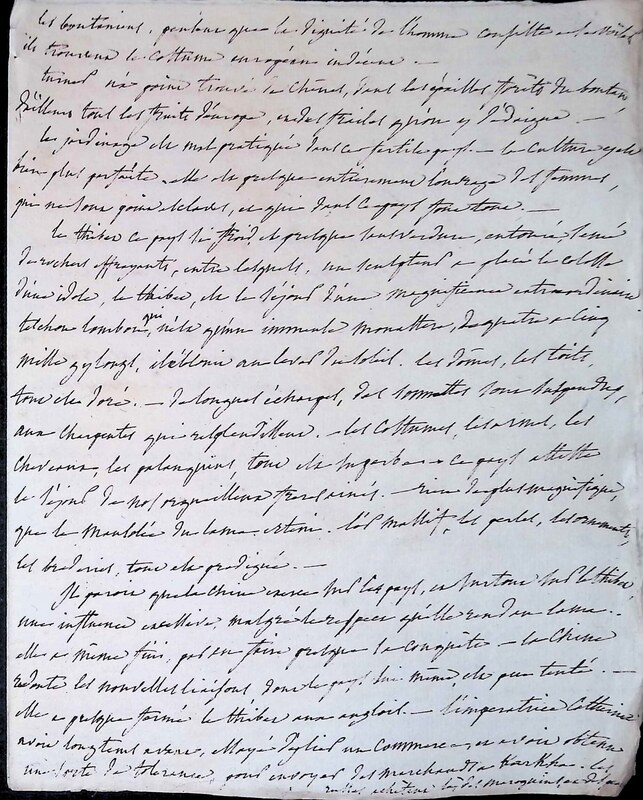 les boutaniens, pensent que la dignité de l'homme consiste
ils trouvent le costume européen indécent. —
turner n'a point trouvé le chêne, dans les épaisses forêts du boutan
d'ailleurs tous les fruits d'europe, et des fraises qu'on y dédaigne. —
le jardinage est mal pratiqué dans ce fertile pays. — la culture y est
bien plus parfaite. elle est presque entièrement l'ouvrage des femmes,
qui ne sont point esclaves, et qui dans ce pays font tout. —
le thibet ce pays si froid, et presque sans verdure, entouré, semé
de rochers effrayants, entre lesquels, un sculpteur a placé le colosse
d'une idole, le thibet, est le séjour d'une magnificence extraordinaire.
teschou loumbou, qui n'est qu'un immense monastère, de quatre a cinq
mille gylongs, éblouit au lever du soleil. les dômes, les toits,
tout est doré. — de longues écharpes, des sonnettes sont suspendues,
aux charpentes qui resplendissent. — les costumes, les armes, les
chevaux, les palanquins, tout est superbe — ce pays atteste
le séjour de nos orgueilleux — rien de plus magnifique
que le mausolée du lama. l'or massif, les perles, les ornements,
les broderies, tout est prodigué. —
Il paroit que la chine exerce sur les pays, et surtout sur le thibet
une influence excessive, malgré le respect qu'elle rend au lama. —
elle a même fini, par en faire presque la conquête — la Chine
redoute les nouvelles liaisons dont le pays lui même, est peu tenté. —
elle a presque fermé le thibet aux anglois. — l'impératrice Catherine
avoit longtems avant, essayé d'y lier un commerce, et avoit obtenu
une sorte de tolérance, pour envoyer des marchands a Karkha. les
russes achètent là des maroquins